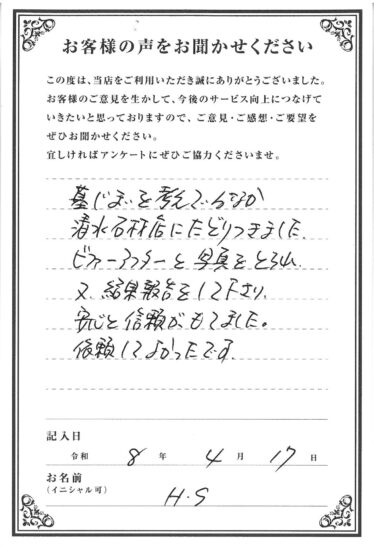 お客様の声をお聞かせください
この度は、当店をご利用いただき誠にありがとうございました。
お客様のご意見を生かして、今後のサービス向上につなげて
いきたいと思っておりますので、ご意見・ご感想・ご要望を
ぜひお聞かせください。
宜しければアンケートにぜひご協力くださいませ。
墓じまいを考えている なか
清水石材店にたどりつきました。
ビフォーアフターと写真をとられ
又、結果報告をして下さり、
安心と信頼がもてました。
依頼してよかったです。
記入日
令和 8 年 4 月 17 日
お名前
(イニシャル可)
H.S